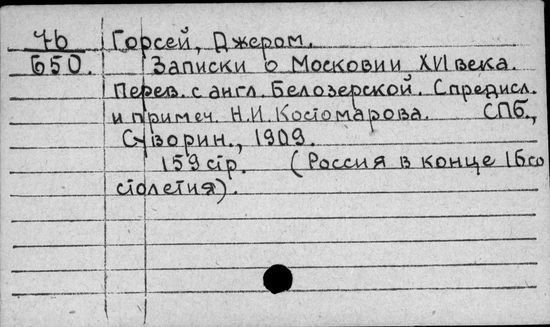 7б Горсей, Джером.
650. Записки о Московии XVI века.
Перев. с англ. Белозерской. С предисл.
и примеч. Н.И. Костомарова. СПб.,
Суворин., 1909.
159 стр. (Россия в конце 16го
столетия).